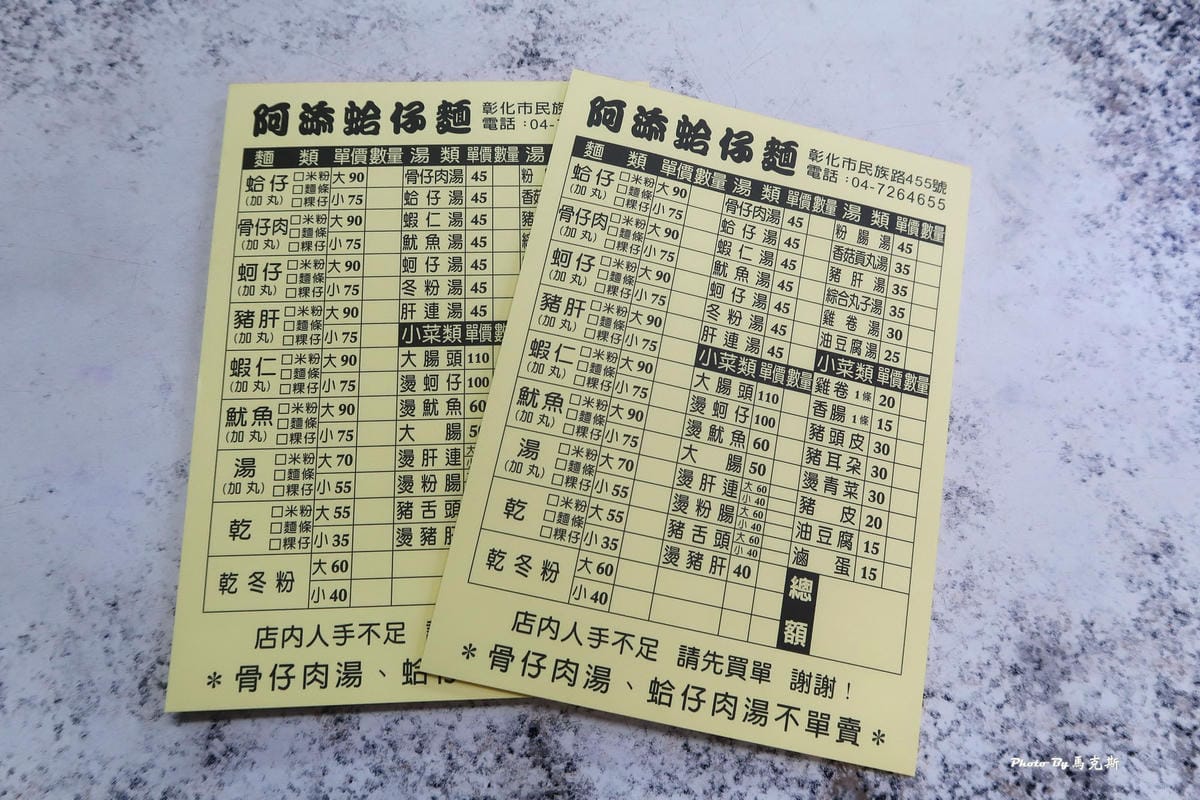 阿添蛤仔麵 彰化市民族
電話:04-7
麵類 單價 數量 湯類 單價 數量 湯
蛤仔(加丸) □米粉 □麵條 □粿仔 大90 小75
骨仔肉(加丸) □米粉 □麵條 □粿仔 大90 小75
蚵仔(加丸) □米粉 □麵條 □粿仔 大90 小75
豬肝(加丸) □米粉 □麵條 □粿仔 大90 小75
蝦仁(加丸) □米粉 □麵條 □粿仔 大90 小75
魷魚(加丸) □米粉 □麵條 □粿仔 大90 小75
湯(加丸) □米粉 □麵條 □粿仔 大70 小55
乾 □米粉 □麵條 □粿仔 大55 小35
乾冬粉 大60 小40
骨仔肉湯 45 粉
蛤仔湯 45 香菇
蝦仁湯 45 豬
魷魚湯 45
蚵仔湯 45
冬粉湯 45
肝連湯 45
小菜類 單價 數
大腸頭 110
燙蚵仔 100
燙魷魚 60
大腸 50
燙肝連
燙粉腸
豬舌頭
燙豬肝
店內人手不足
*骨仔肉湯、蛤仔
阿添蛤仔麵 彰化市民族路455號
電話:04-7264655
麵類 單價 數量 湯類 單價 數量 湯類 單價 數量
蛤仔(加丸) □米粉 □麵條 □粿仔 大90 小75
骨仔肉(加丸) □米粉 □麵條 □粿仔 大90 小75
蚵仔(加丸) □米粉 □麵條 □粿仔 大90 小75
豬肝(加丸) □米粉 □麵條 □粿仔 大90 小75
蝦仁(加丸) □米粉 □麵條 □粿仔 大90 小75
魷魚(加丸) □米粉 □麵條 □粿仔 大90 小75
湯(加丸) □米粉 □麵條 □粿仔 大70 小55
乾 □米粉 □麵條 □粿仔 大55 小35
乾冬粉 大60 小40
骨仔肉湯 45
蛤仔湯 45
蝦仁湯 45
魷魚湯 45
蚵仔湯 45
冬粉湯 45
肝連湯 45
小菜類 單價 數量
大腸頭 110
燙蚵仔 100
燙魷魚 60
大腸 50
燙肝連 大60 小40
燙粉腸 大60 小40
豬舌頭 大60 小40
燙豬肝 40
粉腸湯 45
香菇貢丸湯 35
豬肝湯 35
綜合丸子湯 35
雞卷湯 30
油豆腐湯 25
小菜類 單價 數量
雞卷1條 20
香腸1條 15
豬頭皮 30
豬耳朵 30
燙青菜 30
豬皮 20
油豆腐 15
滷蛋 15
總額
店內人手不足 請先買單 謝謝!
*骨仔肉湯、蛤仔肉湯不單賣*
Photo By 馬克斯